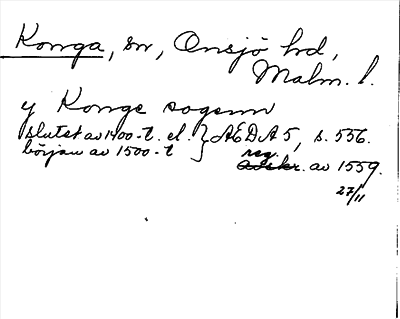 Konga, sn, Onsjö hd,
Malm. l.
y Konge sogenn
slutet av 1400-t. el. } AEDA 5, s. 556.
början av 1500-t
reg.
avskr. av 1559.
27/11